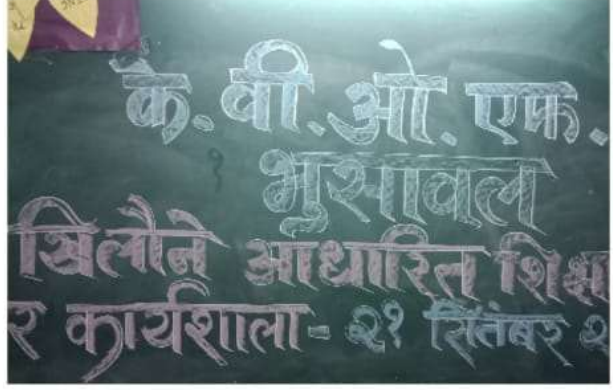 के. वी. ओ. एफ.
भुसावल
खिलौने आधारित शिक्ष
र कार्यशाला - २१ सितंबर २